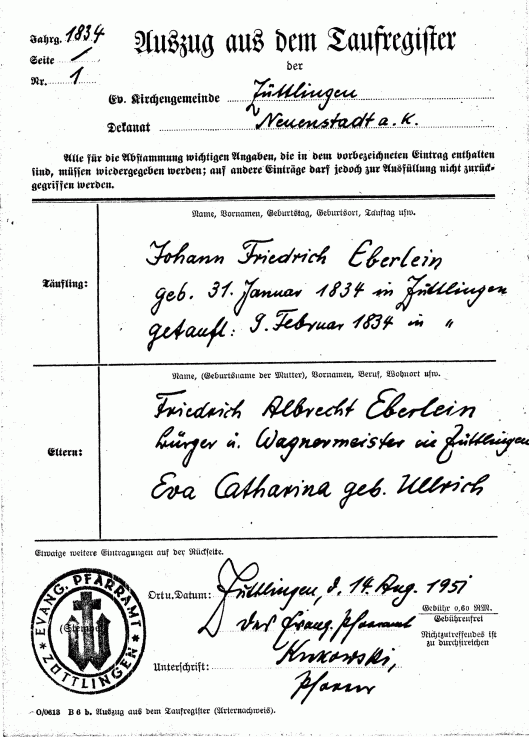 Jahrg. 1834
Seite /
Nr. 1
Auszug aus dem Taufregister
der
Ev. Kirchengemeinde Züttlingen
Dekanat Neuenstadt a. K.
Alle für die Abstammung wichtigen Angaben, die in dem vorbezeichneten Eintrag enthalten
sind, müssen wiedergegeben werden; auf andere Einträge darf jedoch zur Ausfüllung nicht zurück-
gegriffen werden.
Name, Vornamen, Geburtstag, Geburtsort, Tauftag usw.
Täufling:
Johann Friedrich Eberlein
geb. 31. Januar 1834 in Züttlingen
getauft: 9. Februar 1834 in "
Name, (Geburtsname der Mutter), Vornamen, Beruf, Wohnort usw.
Eltern:
Friedrich Albrecht Eberlein
Bürger u. Wagnermeister in Züttlingen
Eva Catharina geb. Ullrich
Etwaige weitere Eintragungen auf der Rückseite.
EVANG. PFARRAMT
ZÜTTLINGEN
(Stempel)
Ort u. Datum: Züttlingen, d. 14. Aug. 1951
Das Evang. Pfarramt
Gebühr 0,60 RM.
Gebührenfrei
Nichtzutreffendes ist
zu durchstreichen
Unterschrift: Krukowski,
Pfarrer
O/0613 B 6 b. Auszug aus dem Taufregister (Ariernachweis).